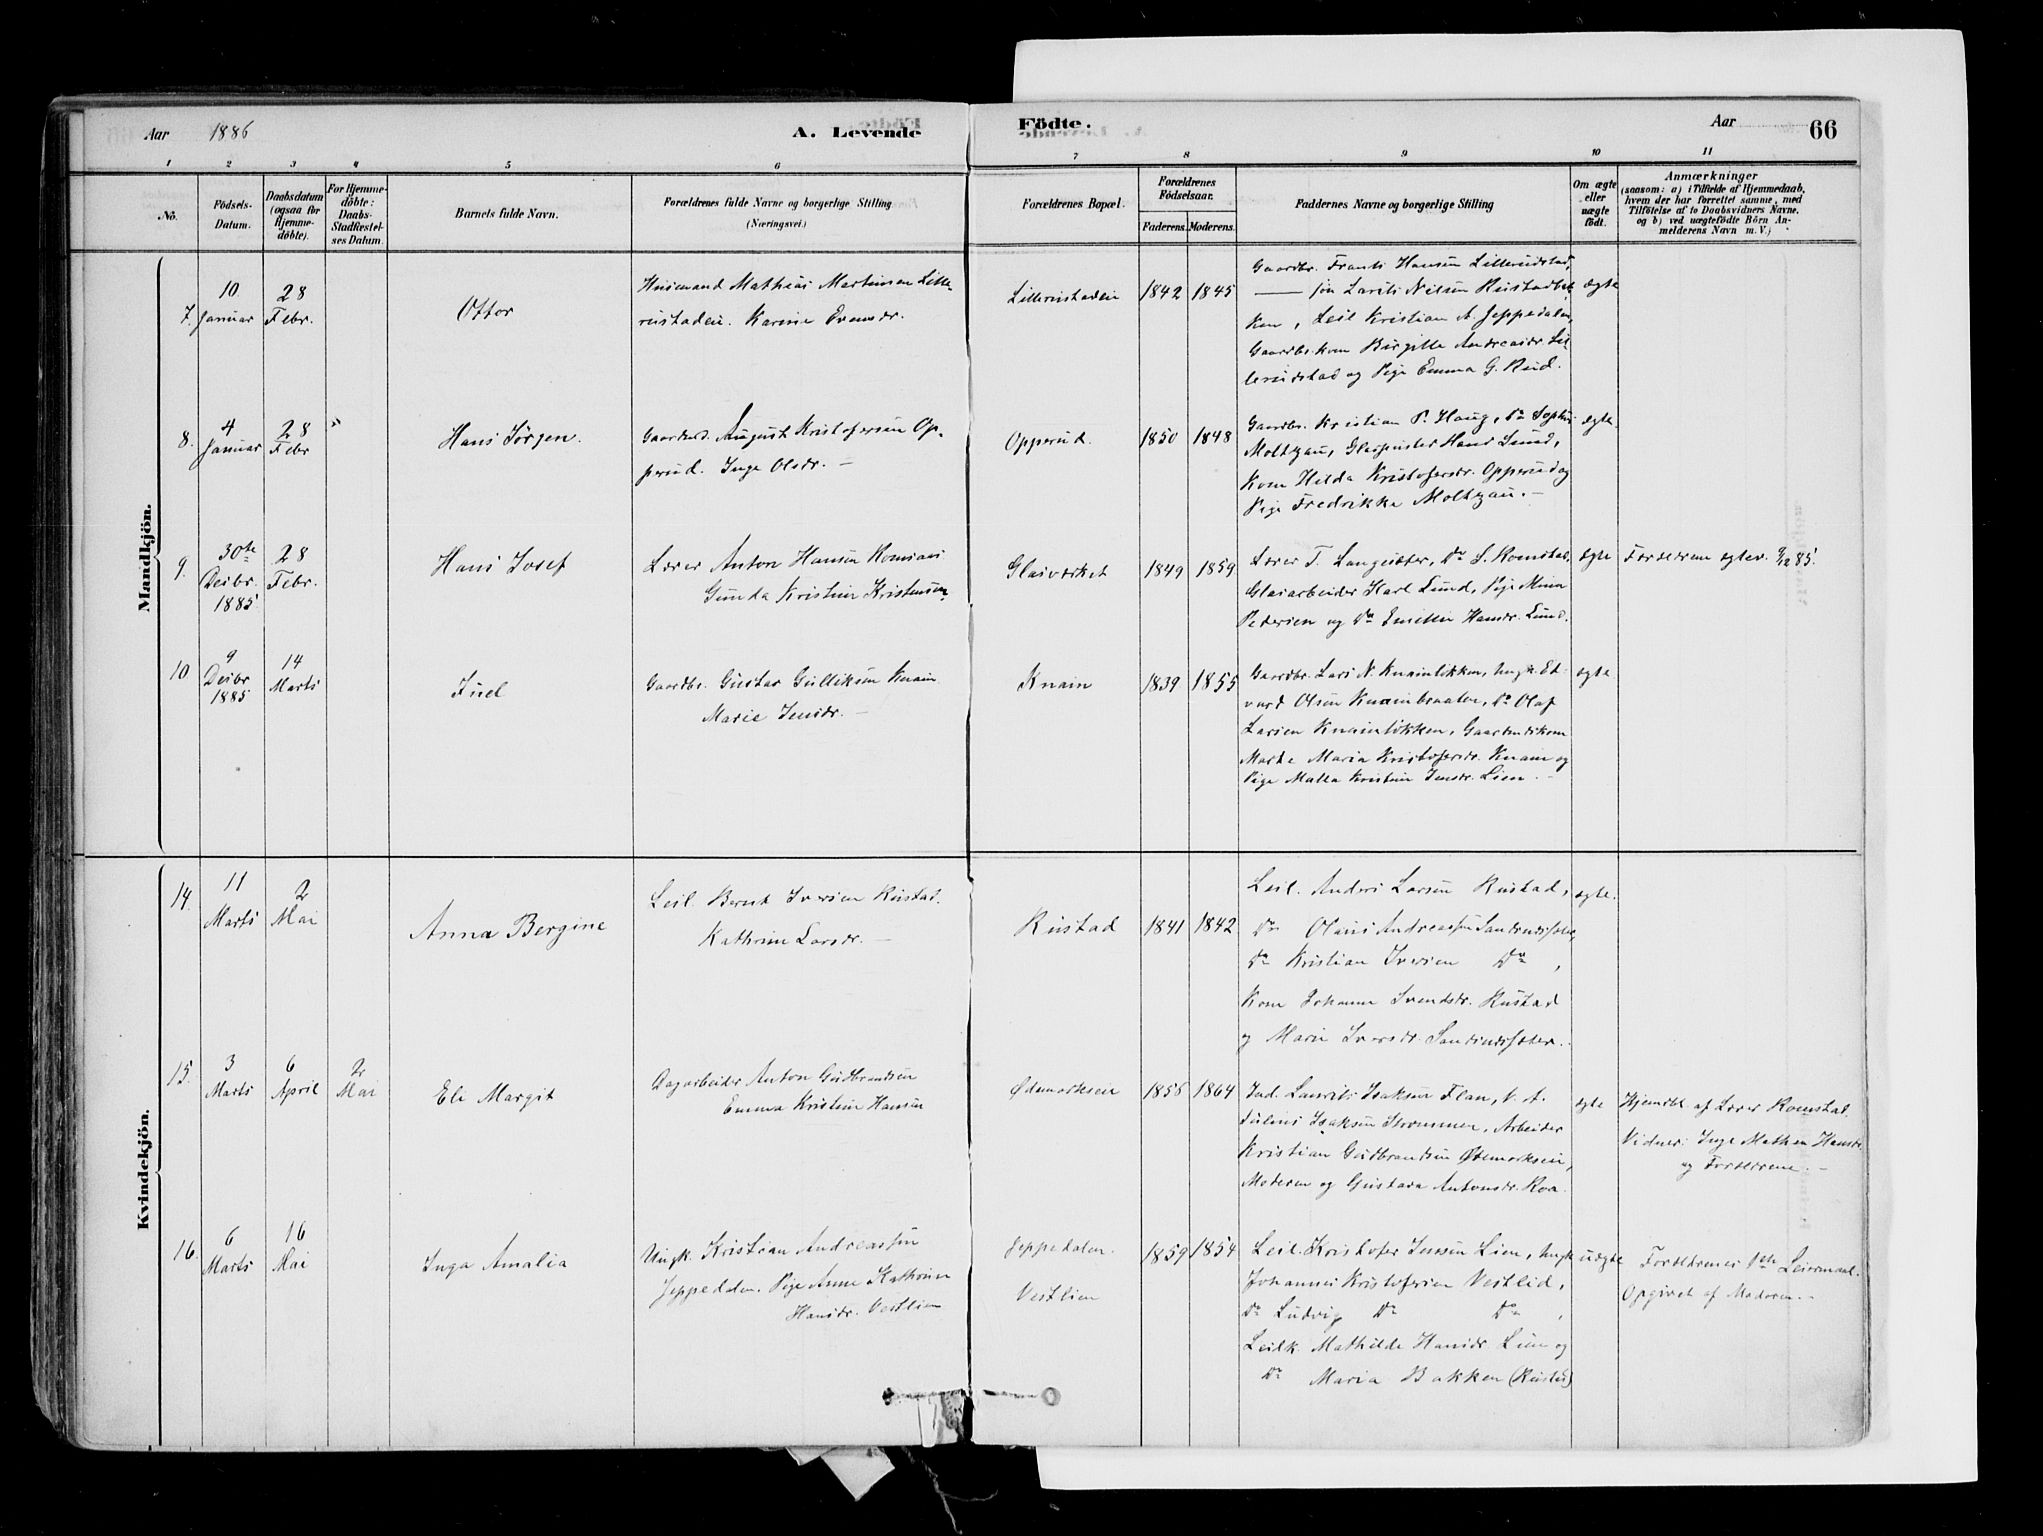 Aar 1886 A. Levende Födte. Aar 66
1 2 3 4 5 6 7 8 9 10 11
No.
Födsels-Datum.
Daabsdatum (ogsaa for Hjemmedøbte).
For Hjemmedöbte: Daabs-Stadfæstelses Datum.
Barnets fulde Navn.
Forældrenes fulde Navne og borgerlige Stilling (Næringsvei.)
Forældrenes Bopæl.
Forældrenes Födselsaar.
Faderens. Moderens.
Faddernes Navne og borgerlige Stilling
Om ægte eller uægte födt.
Anmærkninger
(saasom: a) i Tilfælde af Hjemmedaab, hvem der har forrettet samme, med Tilföielse af to Daabsvidners Navne, og b) ved uægtefödte Börn Anmelderens Navn m. V.)
Mandkjön.
7. 10 Januar 28 Febr.
Ottar
Husmand Mathias Martinsen Lille-
rustadeie. Karine Evensdr.
Lillerustadeie 1842 1845
Gaardbr. Frants Hansen Lillerudstad,
— søn Larits Nilsen Rustadbak-
ken, Leil Kristian A. Jeppedalen,
Gaardbr.kone Birgitte Andreasdr. Lil-
lerudstad og Pige Emma G. Rud.
ægte
8. 4 Januar 28 Febr
Hans Jörgen.
Gaardbr. August Kristofersen Op-
perud. Inge Olsdr. —
Opperud. 1850 1848
Gaardbr. Kristian P. Haug, Do Sophus
Moltzau, Glaspuster Hans Lund,
Kone Hilda Kristofersdr. Opperud og
Pige Fredrikke Moltzau. —
ægte.
9. 30te Decbr. 1885 28 Febr.
Hans Josef
Lærer Anton Hansen Romsaas
Gunda Kristine Kristensen
Glasværket 1849 1859
Lærer T. Langsæter, Do S. Romstad,
Glasarbeider Karl Lund, Pige Mina
Pedersen og Do Emilie Hansdr. Lund.
ægte
Forældrene ægtev. 9/12 85.
10 9 Decbr 1885 14 Marts
Juel
Gaardbr. Gustav Gulliksen Knain
Marie Jensdr. —
Knain 1839 1855
Gaardbr. Lars N. Knainlökken, Ungk. Ed-
vard Olsen Knainbraaten, Do Olaf
Larsen Knainlökken, Gaardmandskone
Marte Maria Kristofersdr. Knain og
Pige Malla Kristine Jensdr. Lien. —
ægte
Kvindekjön.
14. 11 Marts 2 Mai
Anna Bergine
Leil. Bernt Iversen Rustad.
Kathrine Larsdr. —
Rustad 1841 1842
Leil. Anders Larsen Rustad,
Do Olaus Andreassen Sandrudsæter,
Do Kristian Iversen Do,
Kone Johanne Svendsdr. Rustad
og Marie Iversdr. Sandrudsæter.
ægte.
15. 3 Marts 6 April 2 Mai
Eli Margit
Dagarbeider Anton Gudbrandsen
Emma Kristine Hansen
Ödemarkseie 1856 1864
Ind. Laurits Isaksen Flan,
Julius Isaksen Strömmen, Arbeider
Kristian Gudbrandsen Ödemarkseie,
Moderen og Gustava Antonsdr. Roa.
ægte
Hjemdbt. af Lærer Romstad.
Vidner: Inge Mathea Hansdr.
og Forældrene. —
16. 6 Marts 16 Mai
Inga Amalia
Ungk. Kristian Andreassen
Jeppedalen. Pige Anne Kathrine
Hansdr. Vestlien
Jeppedalen.
Vestlien 1859 1854
Leil. Kristofer Jensen Lien, Ungk
Johannes Kristofersen Vestlid,
Do Ludvig Do Do,
Leilk. Mathilde Hansdr. Lien og
Do Maria Bakken (Rustad)
uægte
Forældrenes 1ste Leiermaal.
Opgivet af Moderen. —